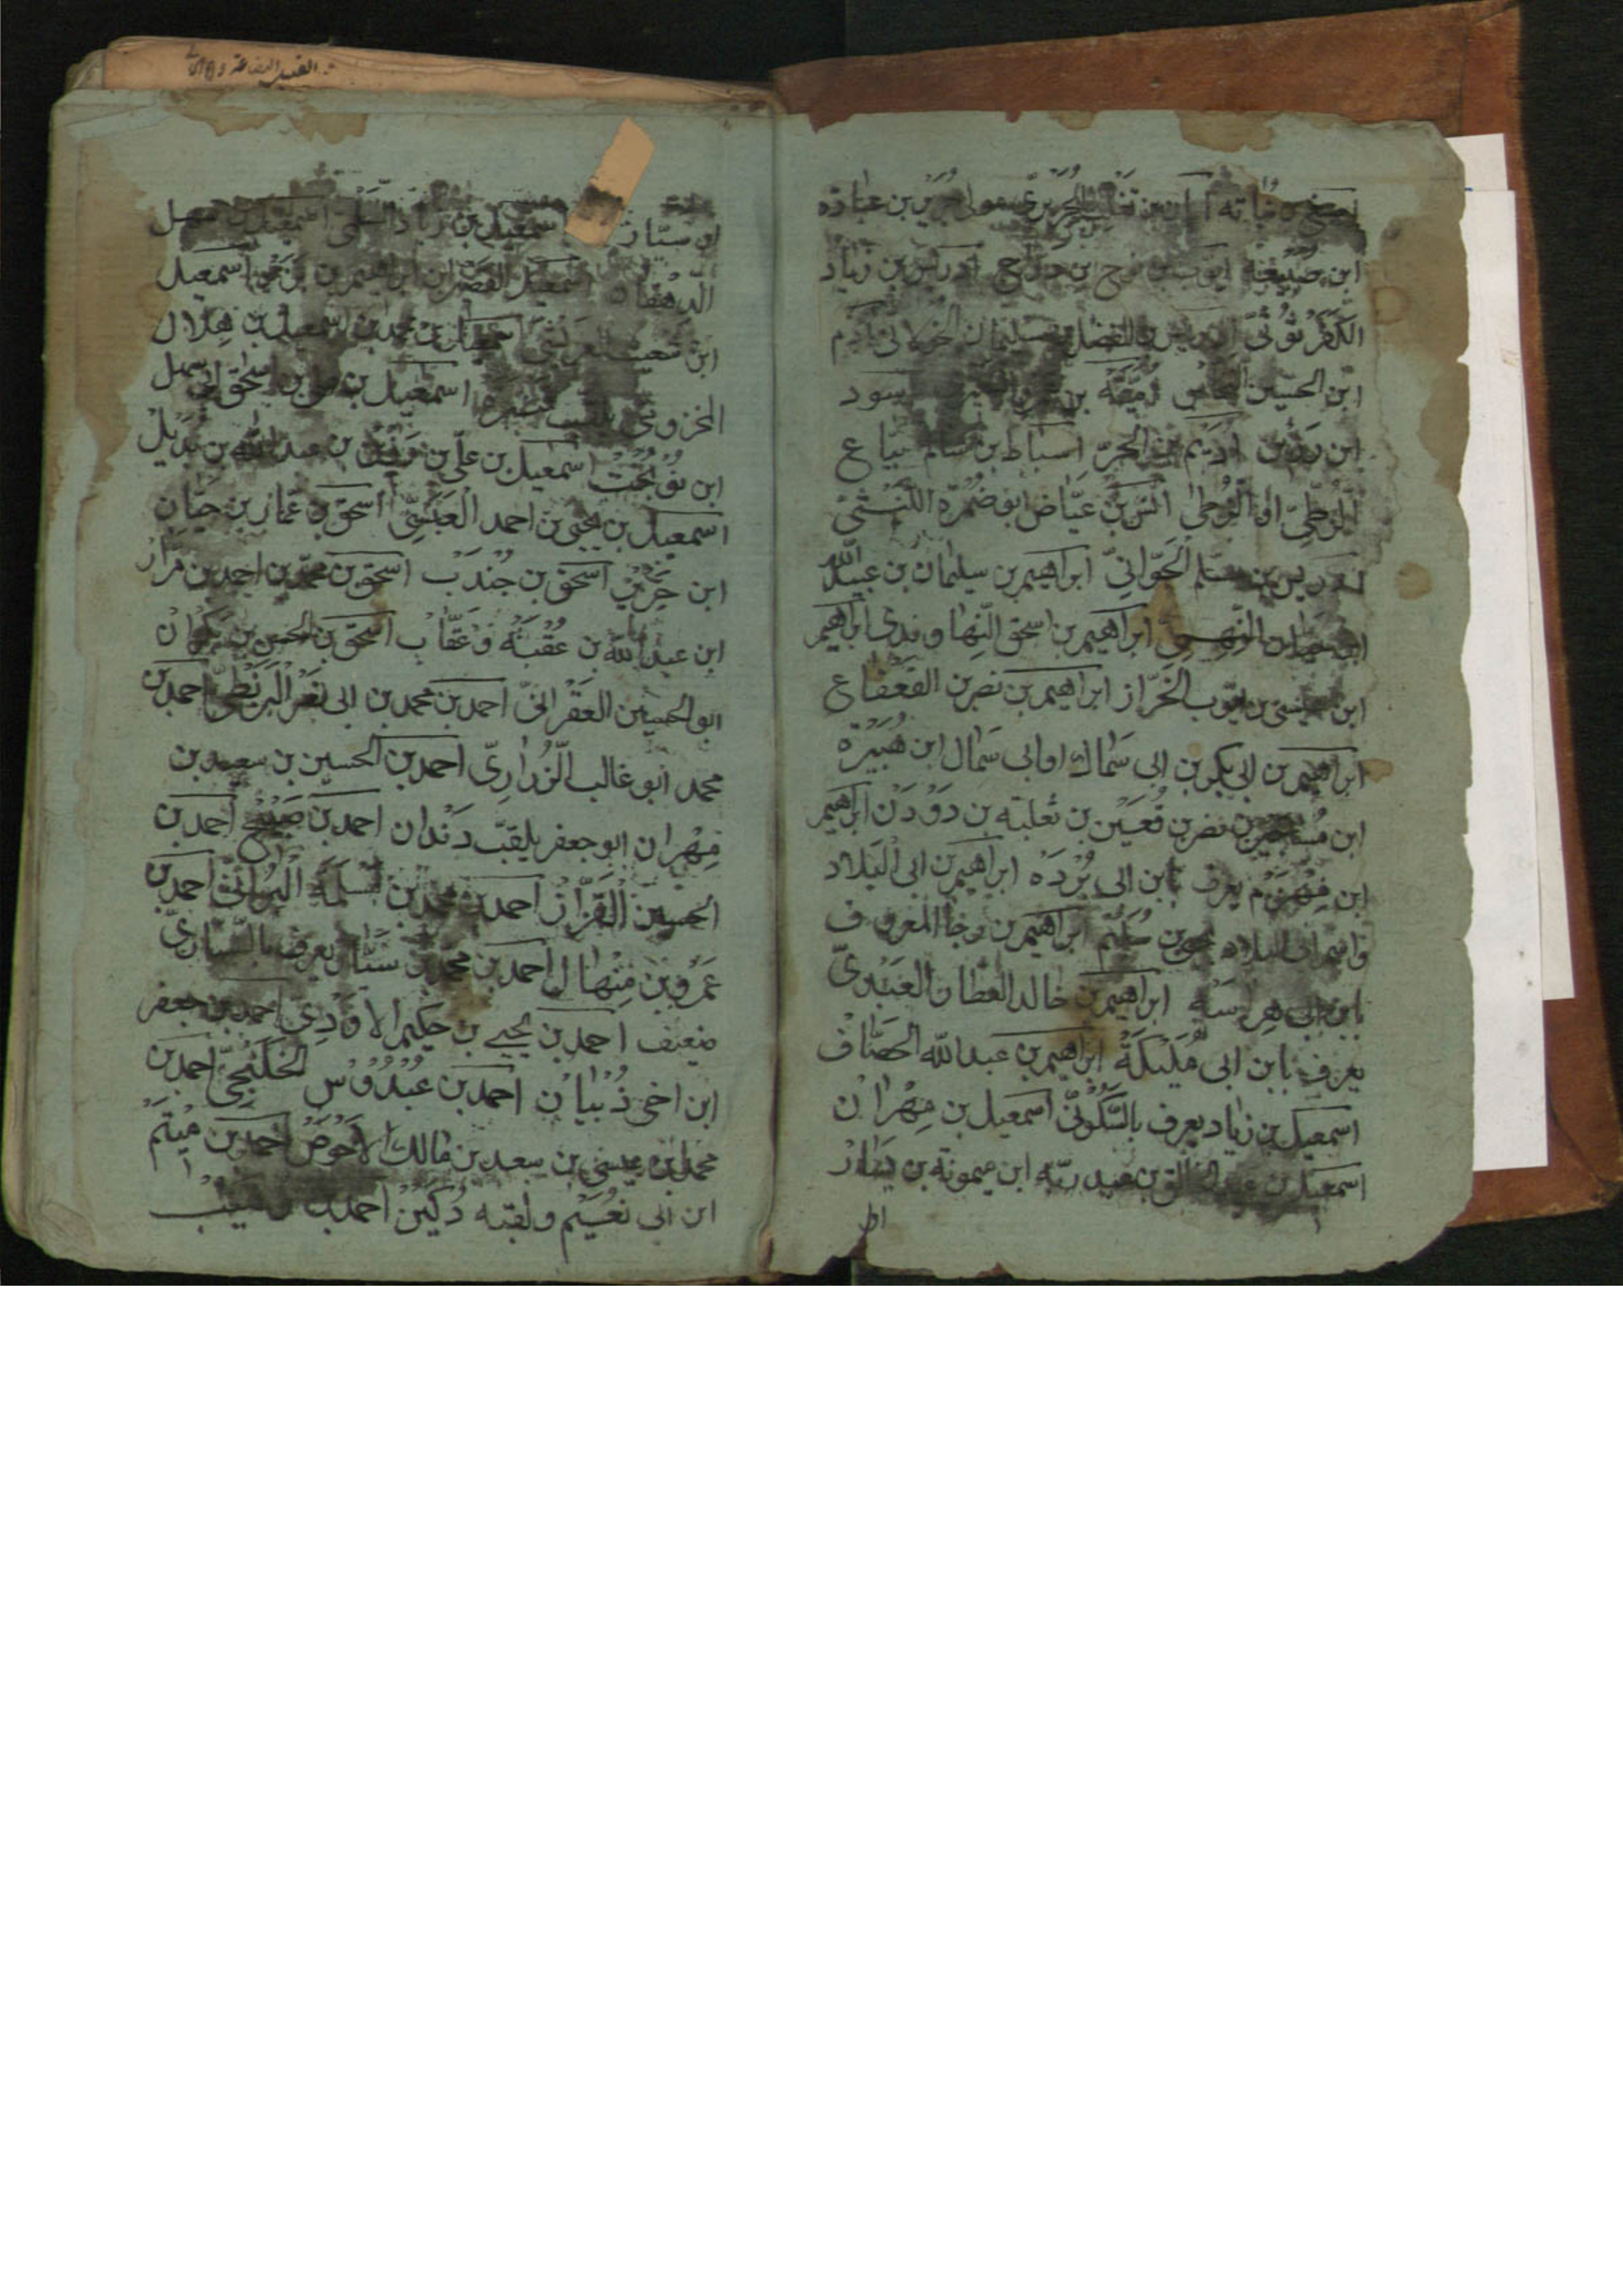 اصبغ بن نباته ابان بن تغلب الجريرى مولى جرير بن عباده
ابن ضبيعة ايوب بن نوح بن دراج ادريس بن زياد
الكفرثوثىّ ادريس بن الفضل بن سليمان الخولانى آدم
ابن الحسين النخاس اميّة بن
ابن رزين اديم بن الحرّ اسباط بن سالم بيّاع
الزطّى انس بن عيّاض ابو ضمرة الليثى
ادريس بن مسلم الحوّانىّ ابراهيم بن سليمان بن عبيدالله
ابن النهمىّ ابراهيم بن اسحق النهاوندى ابراهيم
ابن عيسى بن ايّوب الخرّاز ابراهيم بن نصر بن القعقاع
ابراهيم بن ابى بكر بن ابى سماك او ابى سمال ابن هُبَيْرَة
ابن نصر بن قُعَيْن بن ثعلبة بن دَوْدَن ابراهيم
ابن مِهْزَم يعرف بابن ابى بُرْدَه ابراهيم بن ابى البَلاد
واسم ابى البلاد يحيى بن سُلَيْم ابراهيم بن رجا المعروف
بابن ابى هراسَه ابراهيم بن خالد العطّار العَبْدىّ
يعرف بابن ابى مُلَيْكَةَ ابراهيم بن عبدالله الحصّاف
اسمعيل بن زياد يعرف بالسَّكُونىّ اسمعيل بن مِهْران
اسمعيل بن عبد الخالق بن عبد ربّه ابن ميمونة بن يسار
ابن سيّار اسمعيل بن زياد السلمى اسمعيل بن سهل
الدهقان اسمعيل القصير بن ابراهيم بن بَزَّة اسمعيل
ابن شعيب العريشىّ اسمعيل بن محمد بن اسمعيل بن هلال
المخزومىّ اسمعيل بن على بن اسحق بن ابى سهل
ابن نُوبُخْت اسمعيل بن علّى بن رَزِين بن عبدالله بن بديل
اسمعيل بن يحيى بن احمد العَبْسىّ اسحق بن عمّار بن حيّان
ابن جرير اسحق بن جُندَب اسحق بن محمّد بن احمد بن مرار
ابن عبدالله بن عُقْبَة وعَقّاب اسحق بن الحسن بن بكران
ابو الحسين العقرانىّ احمد بن محمد بن ابى نصر البزنطىّ احمد بن
محمد ابو غالب الزُرارىّ احمد بن الحسين بن سعيد بن
مِهْران ابو جعفر يلقبّ دندان احمد بن صَبيح احمد بن
الحسين القزّاز احمد بن محمد بن مَسْلَمَة احمد بن
عَمْرو بن مِنْهال احمد بن محمد بن سيّار يعرف بالسّيّارىّ
ضعيف احمد بن يحيى بن حكيم الاَوْدِىّ احمد بن جعفر
ابن اخى ذُبْيان احمد بن عُبْدُوْس الخَلَنْجِىّ احمد بن
محمد بن عيسى بن سعد بن مالك الاَحْوَصُ احمد بن مِيْثَمْ
ابن ابى نُعَيْم ولقبه دُكَيْن احمد بن